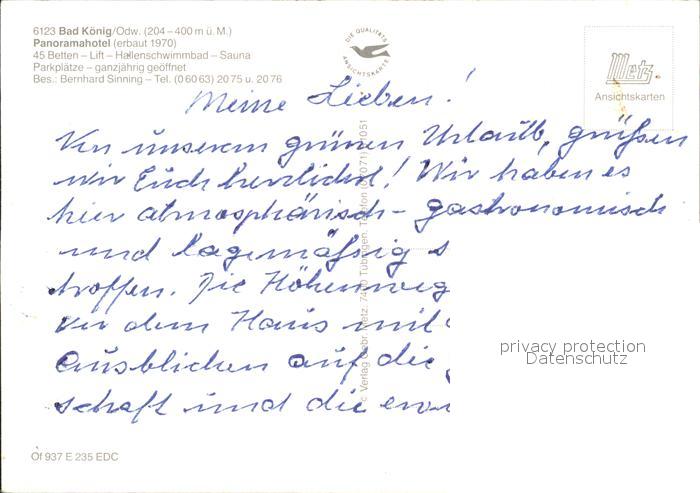 6123 Bad König/Odw. (204–400 m ü. M.)
Panoramahotel (erbaut 1970)
45 Betten – Lift – Hallenschwimmbad – Sauna
Parkplätze – ganzjährig geöffnet
Bes.: Bernhard Sinning – Tel. (0 60 63) 20 75 u. 20 76
DIE QUALITÄTS
ANSICHTSKARTE
Metz
Ansichtskarten
Meine Lieben!
Von unserem grünen Urlaub, grüßen
wir Euch herzlichst! Wir haben es
hier atmosphärisch- gastronomisch
und lagemäßig s
troffen. Die Höhenweg
vor dem Haus mit
Ausblicken auf die
schaft und die
© Verlag Gebr. Metz, 74 Tübingen, Telefon
privacy protection
Datenschutz
Of 937 E 235 EDC